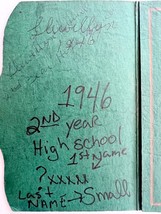 1946
2ND year
High school
1st Name
?xxxxx
Last
Name → Small